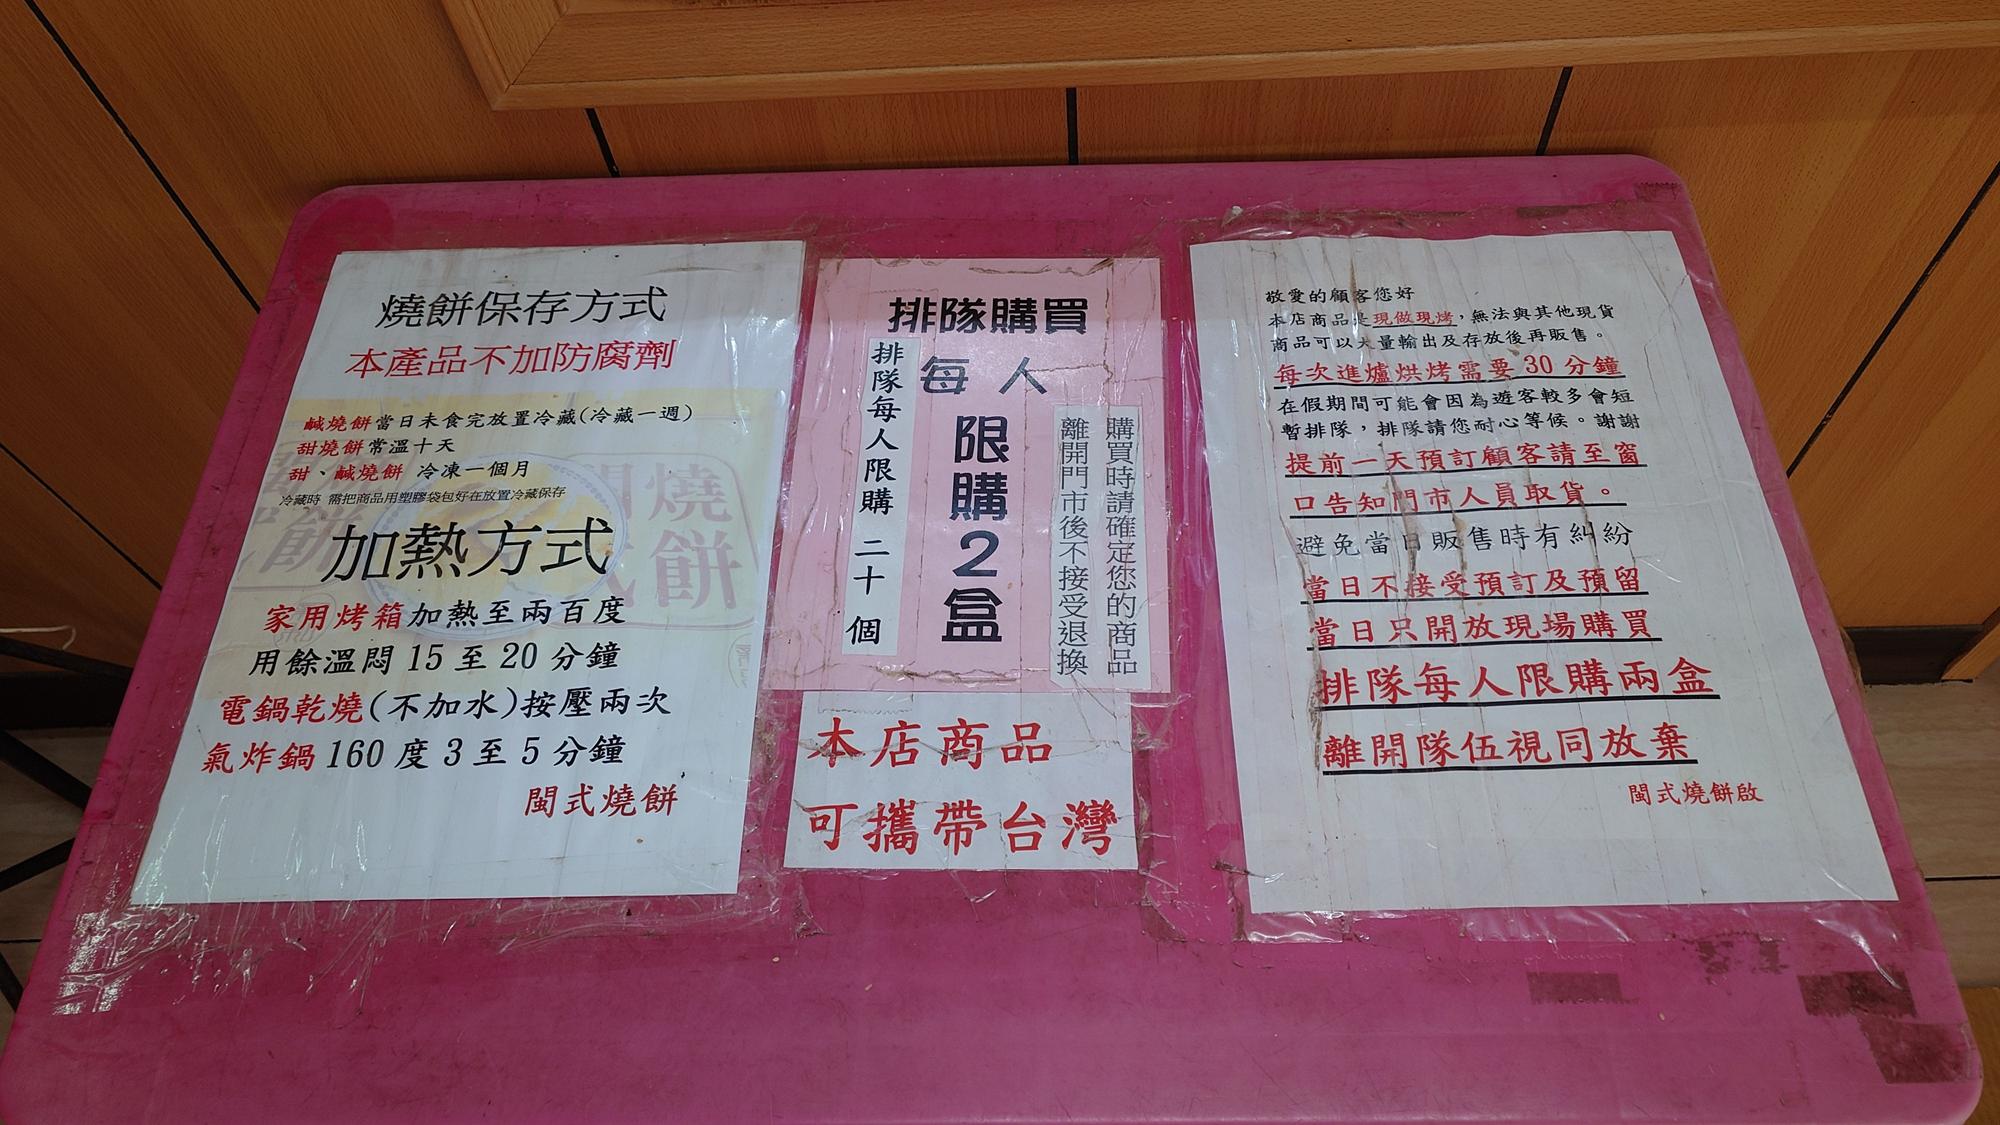 燒餅保存方式
本產品不加防腐劑
鹹燒餅當日未食完放置冷藏(冷藏一週)
甜燒餅常溫十天
甜、鹹燒餅 冷凍一個月
冷藏時 需把商品用塑膠袋包好在放置冷藏保存
加熱方式
家用烤箱加熱至兩百度
用餘溫悶 15 至 20 分鐘
電鍋乾燒(不加水)按壓兩次
氣炸鍋 160 度 3 至 5 分鐘
閩式燒餅
排隊購買
每人
限購2盒
排隊每人限購 二十 個
購買時請確定您的商品
離開門市後不接受退換
本店商品
可攜帶台灣
敬愛的顧客您好
本店商品是現做現烤，無法與其他現貨
商品可以大量輸出及存放後再販售。
每次進爐烘烤需要 30 分鐘
在假期間可能會因為遊客較多會短
暫排隊，排隊請您耐心等候。謝謝
提前一天預訂顧客請至窗
口告知門市人員取貨。
避免當日販售時有糾紛
當日不接受預訂及預留
當日只開放現場購買
排隊每人限購兩盒
離開隊伍視同放棄
閩式燒餅啟